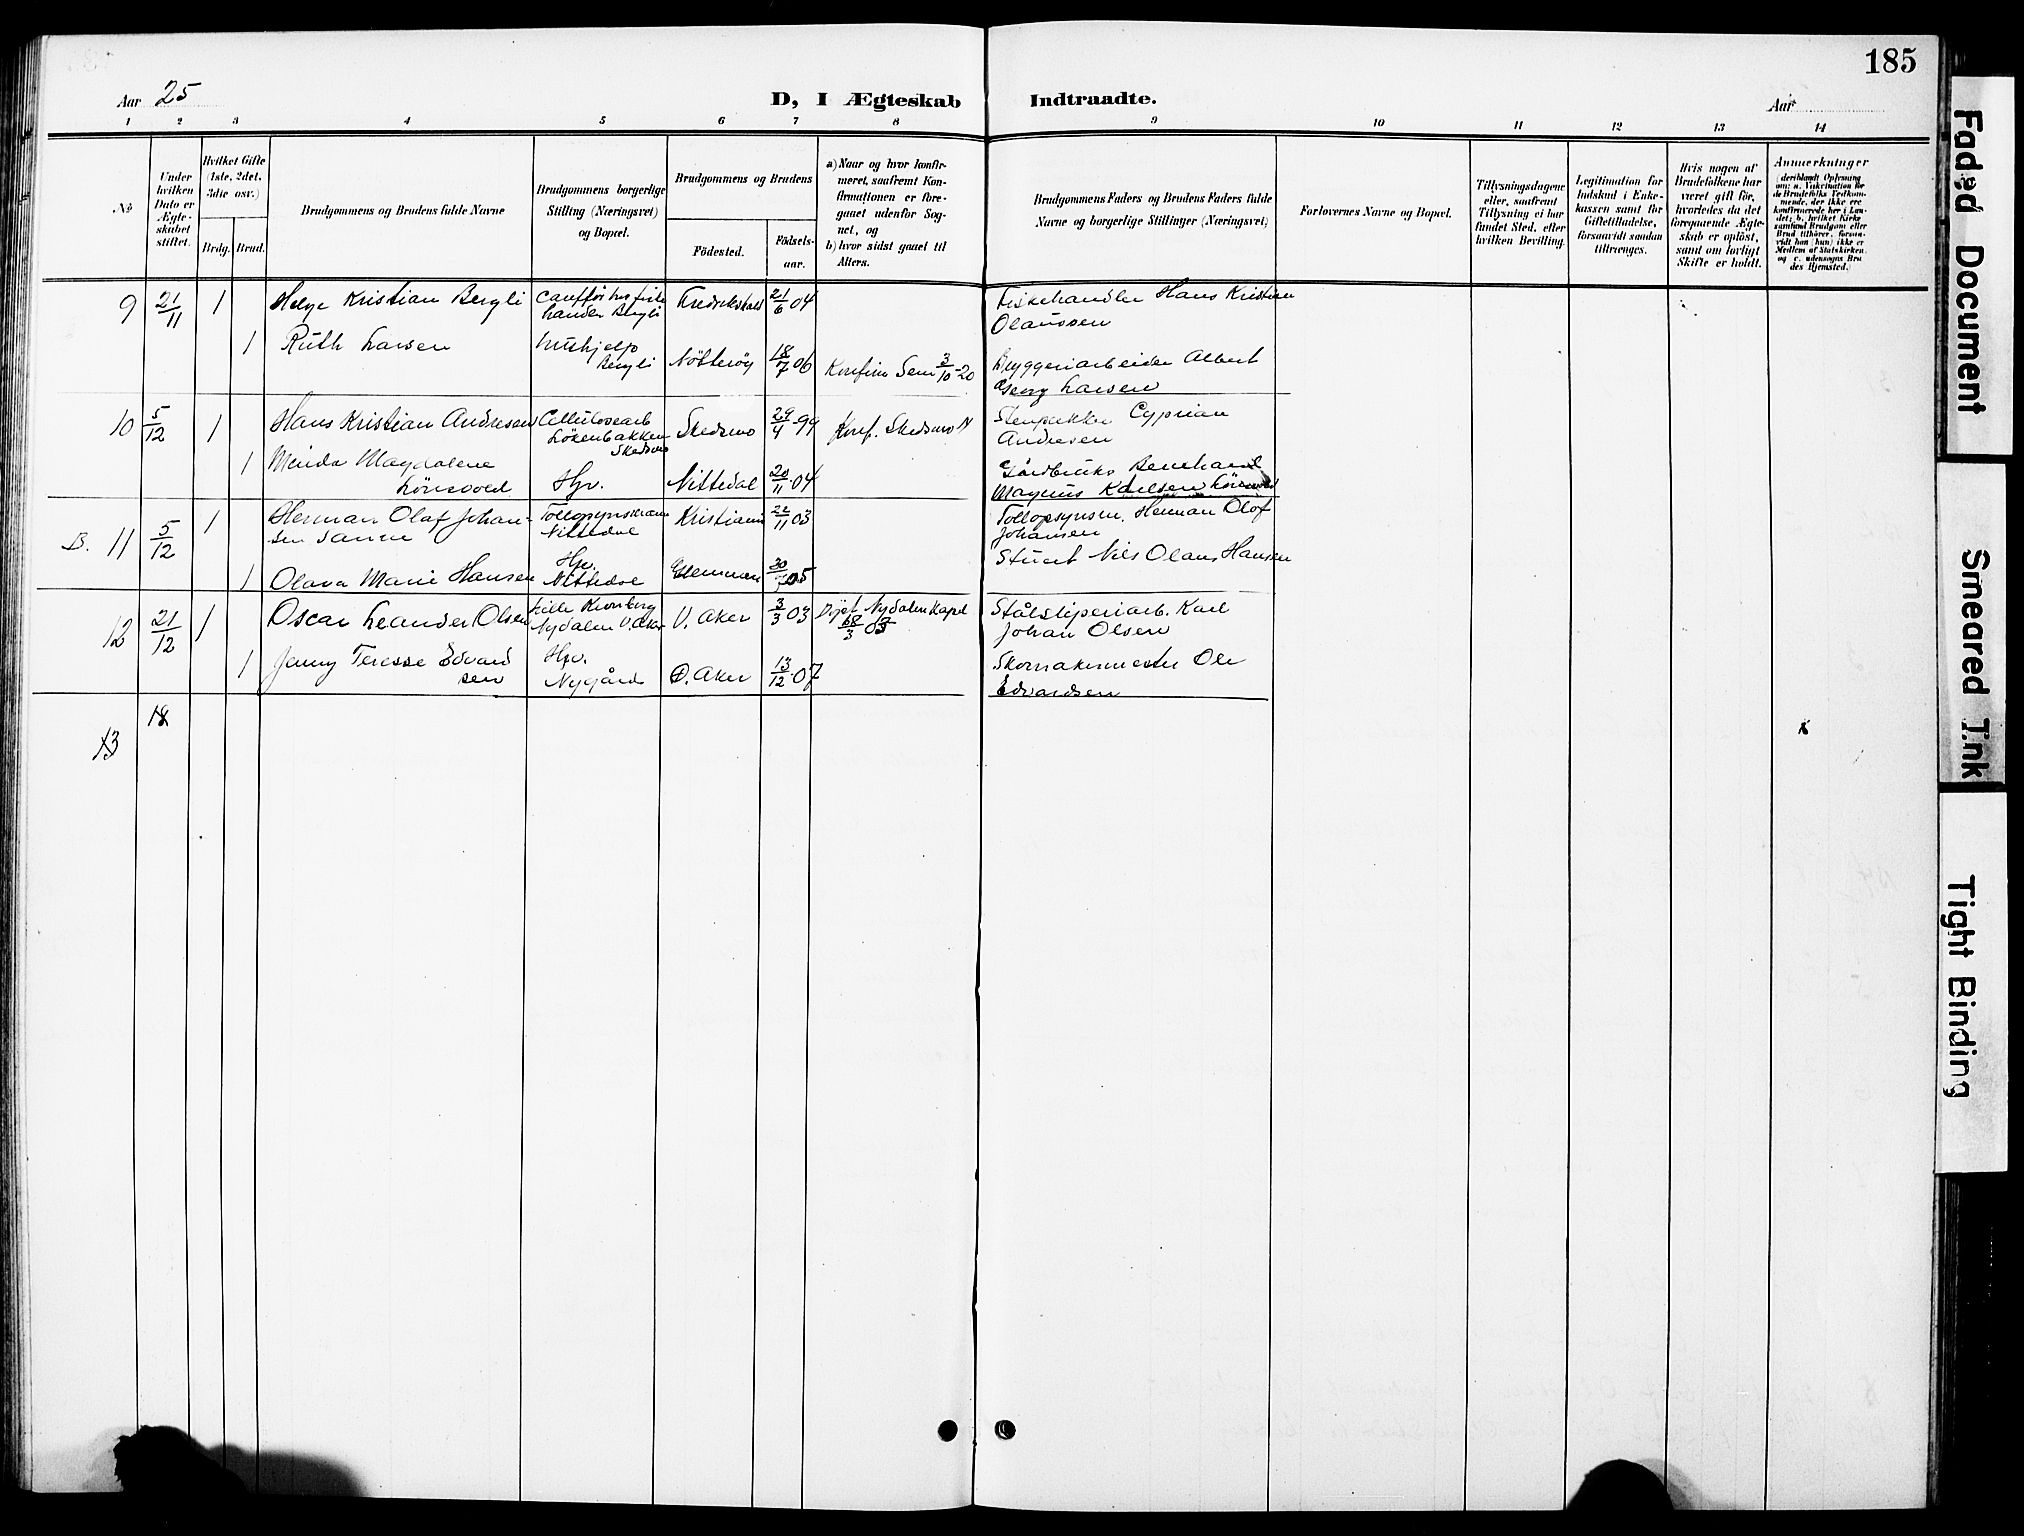 185
Aar 25
D, I Ægteskab Indtraadte.
Aar
1 2 3 4 5 6 7 8 9 10 11 12 13 14
No
Under
hvilken
Dato er
Ægte-
skabet
stiftet.
Hvilket Gifte
(1ste, 2det,
3die osv.)
Brdg. Brud.
Brudgommens og Brudens fulde Navne
Brudgommens borgerlige
Stilling (Næringsvei)
og Bopæl.
Brudgommens og Brudens
Födested.
Födsels-
aar.
a) Naar og hvor konfir-
meret, saafremt Kon-
firmationen er fore-
gaaet udenfor Sog-
net, og
b) hvor sidst gaaet til
Alters.
Brudgommens Faders og Brudens Faders fulde
Navne og borgerlige Stillinger (Næringsvei)
Forlovernes Navne og Bopæl.
Tillysningsdagene
eller, saafremt
Tillysning ei har
fundet Sted, efter
hvilken Bevilling.
Legitimation for
Indskud i Enke-
kassen samt for
Giftetilladelse,
forsaavidt saadan
tiltrænges.
Hvis nogen af
Brudefolkene har
været gift før,
hvorledes da det
foregaaende Ægte-
skab er opløst,
samt om lovligt
Skifte er holdt.
Anmerkninger
(deriblandt Oplysning
om: a. Vakcination for
de Brudefolks Vedkom-
mende, der ikke ere
konfirmerede her i Lan-
det; b. hvilket Kirke
samfund Brudgom eller
Brud tilhører, forsaa-
vidt han (hun) ikke er
Medlem af Statskirken
og c. udensogns Bru
des Hjemsted.)
9 21/11 1 Helge Kristian Bergli
Bergli
Fredrikstad 21/6 04
Fiskehandler Hans Kristian
Olaussen
1 Ruth Larsen
Hushjelp
Bergli
Nøtterøy 18/7 06
Konfirm Sem 3/10-20
Bryggeriarbeider Albert
Georg Larsen
10 5/12 1 Hans Kristian Andresen
Cellulosearb
Løkenbakken
Skedsmo
Skedsmo 29/4 99
Konf. Skedsmo 14
Cyprian
Andresen
1 Minda Magdalene
Lønsvold
Hjv.
Nittedal 20/11 04
Gårdbruker Bernhard
Magnus Karlsen
B. 11 5/12 1 Herman Olaf Johan-
sen
Nittedal
Kristiania 22/11 03
Tollopsynsm. Herman Olof
Johansen
1 Olava Marie Hansen
Hjv.
Nittedal
Glemmen 05
Stuert Nils Olaus Hansen
12 21/12 1 Oscar Leander Olsen
Nydalen V. Aker
V. Aker 3/3 03
Døpt Nydalen Kapel
Stålsliperiarb. Karl
Johan Olsen
1 Jenny Teresse Edvard
sen
Hjv.
Nygård
Ø. Aker 13/12 07
Skomakermester Ole
Edvardsen
18
13
Faded Document
Smeared Ink
Tight Binding